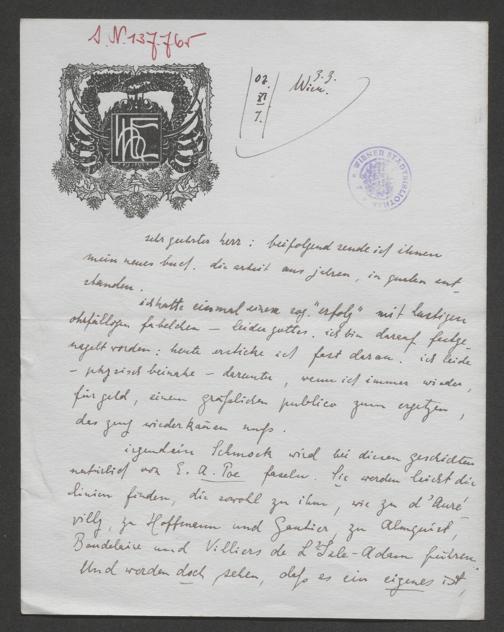 I.N.137.765
07.
XI
7.
z. Z.
Wien.
WIENER STADTBIBLIOTHEK
sehr geehrter herr: beifolgend sende ich ihnen
mein neues buch. die arbeit aus jahren, in qualen ent-
standen.
ich hatte einmal einen sog. "erfolg" mit lustigen
ohrfälligen fabelchen – leider gottes. ich bin darauf festge-
nagelt worden: heute ersticke ich fast daran. ich leide
– physisch beinahe – darunter, wenn ich immer wieder,
für geld, einem gräßlichen publico zum ergetzen,
das zeug wiederkäuen muß.
irgendein Schmock wird bei diesen geschichten
natürlich von E. A. Poe faseln. Sie werden leicht die
linien finden, die sowohl zu ihm, wie zu d'Auré-
villy, zu Hoffmann und Gautier, zu Almquist,
Baudelaire und Villiers de L'Isle-Adam führen.
Und werden doch sehen, daß es ein eigenes ist,